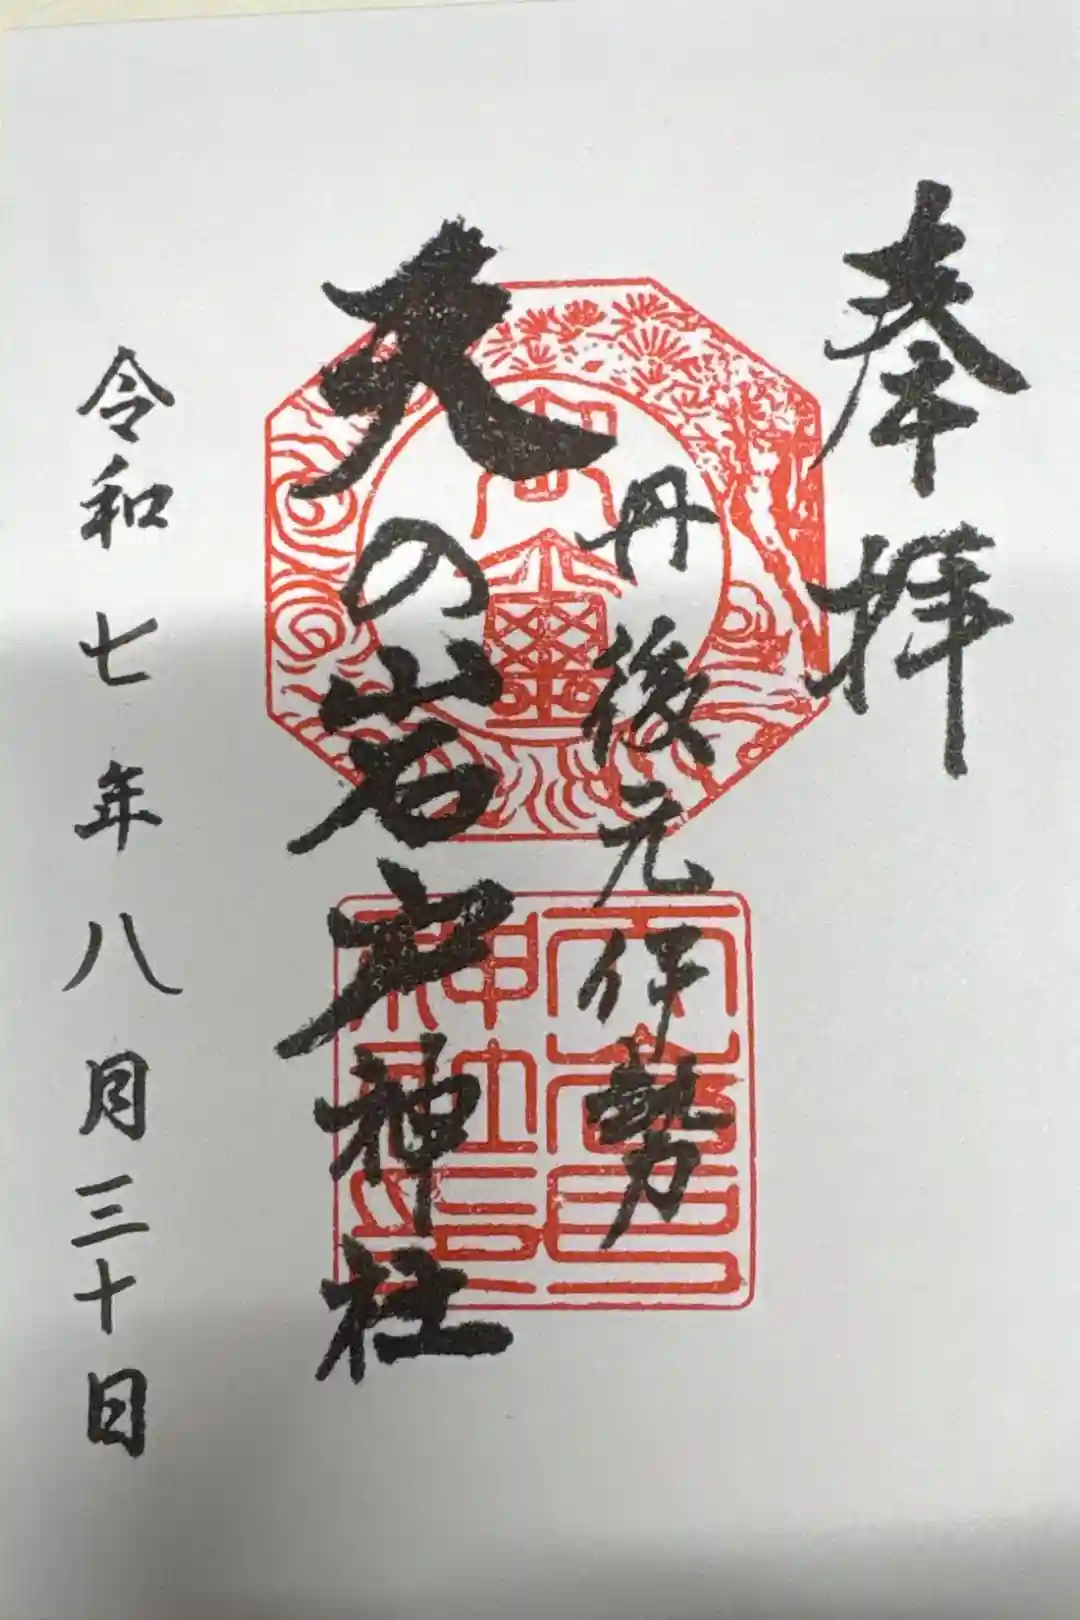 奉拝
丹後元伊勢
天の岩戸神社
令和七年八月三十日